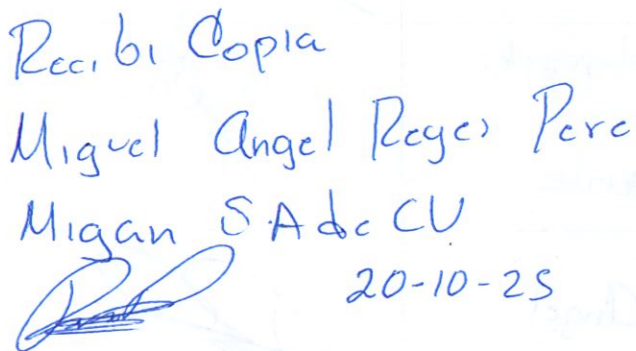 Recibi Copia
Miguel Angel Reyes Pere
Migan SA de CV
20-10-25